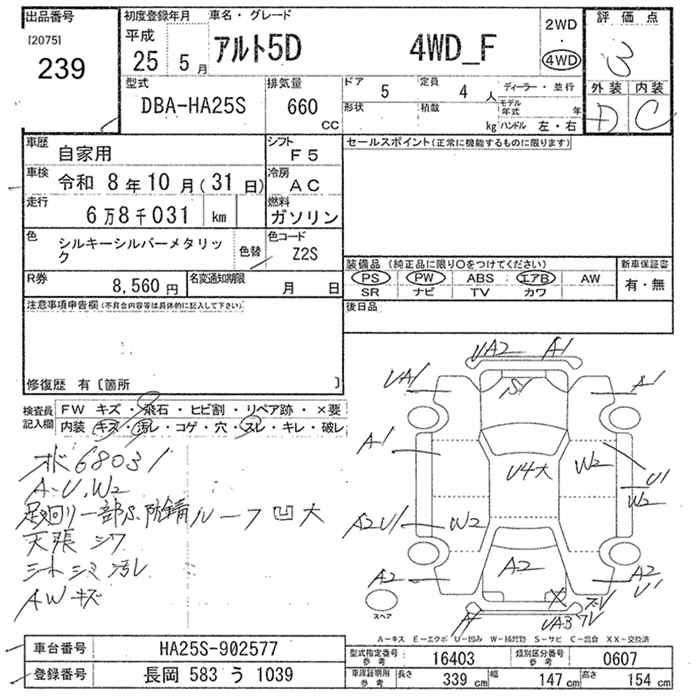 出品番号
[2075]
239
初度登録年月
平成
25 5 月
車名・グレード
アルト5D 4WD_F
2WD
・
4WD
評価点
3
外装 内装
D C
型式
DBA-HA25S
排気量
660
CC
ドア 5
定員 4 人
形状
積載 kg
ディーラー・並行
モデル年式 年
ハンドル 左・右
車歴
自家用
シフト
F5
車検 令和 8年10月(31日)
冷房
AC
走行
6万8千031 km
燃料
ガソリン
色
シルキーシルバーメタリック
色替
色コード
Z2S
R券
8,560 円
名変通知期限
月 日
セールスポイント(正常に機能するものに限ります)
装備品(純正品に限り○をつけてください)
PS PW ABS エアB AW
SR ナビ TV カワ
新車保証書
有・無
後日品
注意事項申告欄(不具合内容等は具体的に記入して下さい)
修復歴 有〔箇所 〕
検査員記入欄
FW キズ・飛石・ヒビ割・リペア跡・×要
内装・キズ・汚レ・コゲ・穴・スレ・キレ・破レ
68031
A・U、W2
足廻り一部S、防錆 ルーフ凹大
天張シワ
シートシミ汚レ
AWキズ
UA2 A1
UA1 S1 A1
A1 U4大 W2 U1
W2
A2U1 W2
A2 A2 A2
U1
X
UA3
スペア
A-キズ E-エクボ U-凹み W-補修跡 S-サビ C-腐食 XX-交換済
車台番号 HA25S-902577
登録番号 長岡 583 う 1039
型式指定番号
参考
16403
類別区分番号
参考
0607
車庫証明用
参考
長さ 339 cm
幅 147 cm
高さ 154 cm